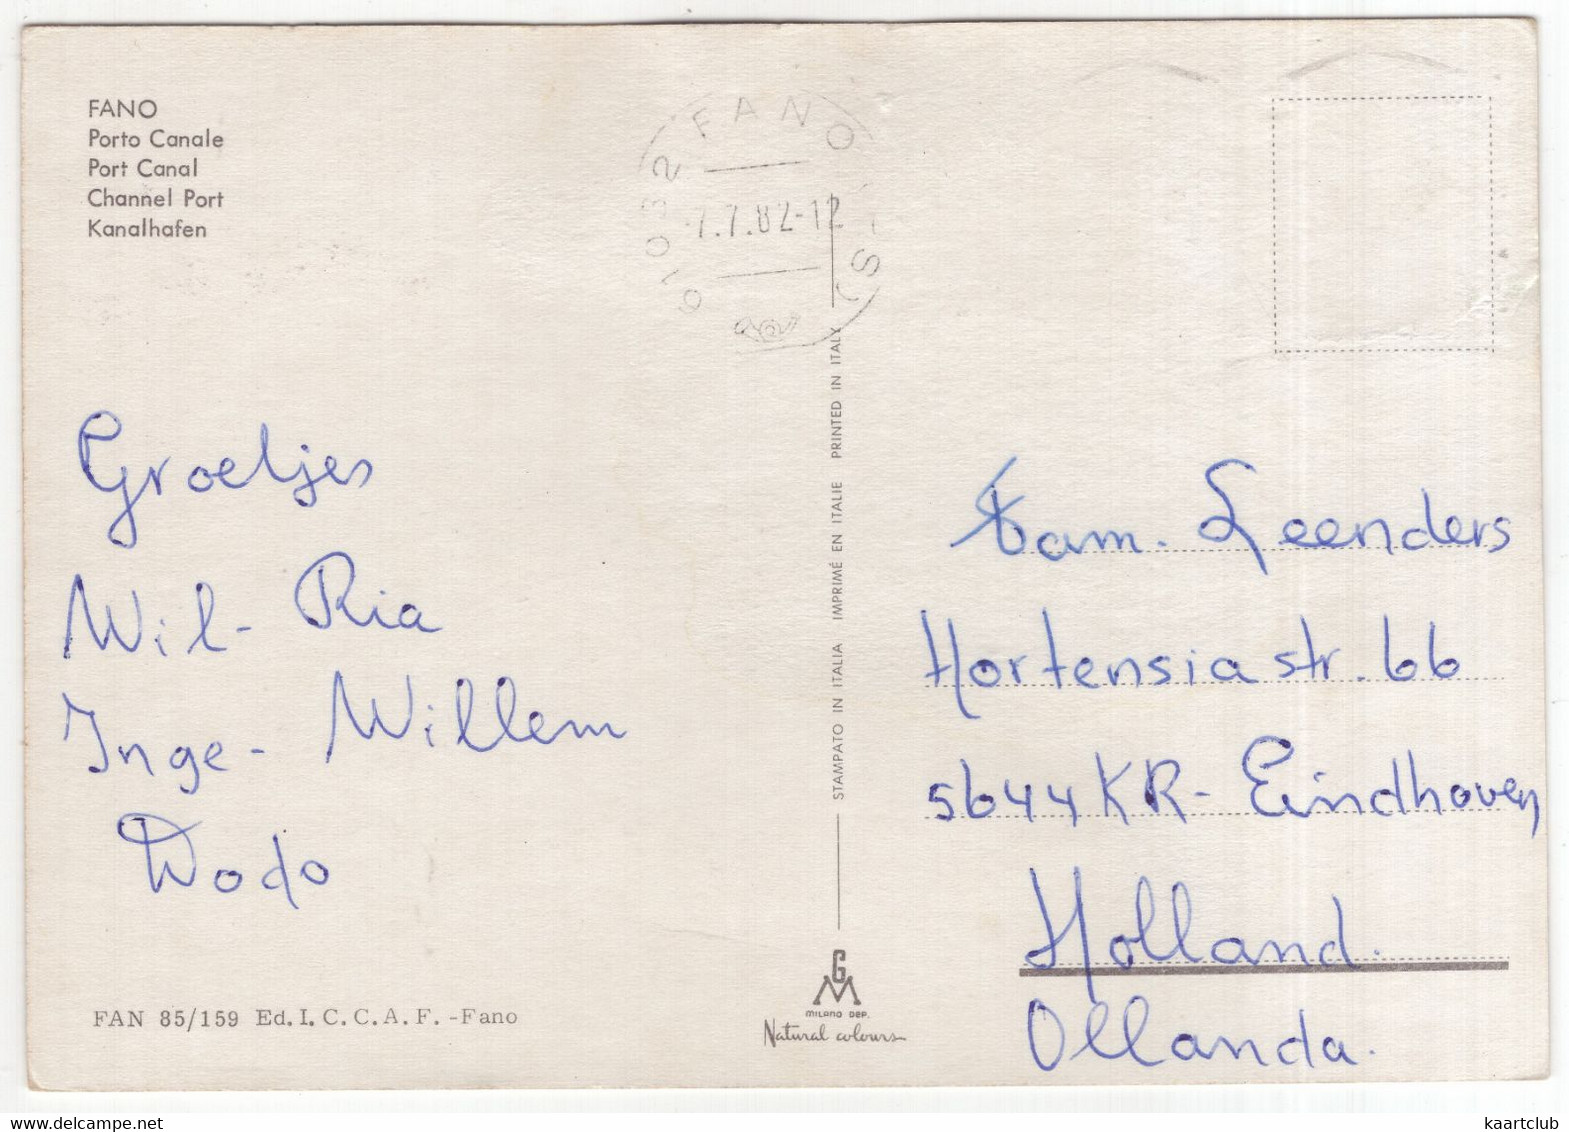 FANO
Porto Canale
Port Canal
Channel Port
Kanalhafen
61032 FANO (PS)
7.7.82-12
Groetjes
Wil - Ria
Inge - Willem
Dodo
FAN 85/159 Ed. I. C. C. A. F. - Fano
STAMPATO IN ITALIA IMPRIMÉ EN ITALIE PRINTED IN ITALY
GM
MILANO DEP.
Natural colours
Fam. Leenders
Hortensiastr. 66
5644 KR - Eindhoven
Holland.
Ollanda.
www.delcampe.net
kaartclub